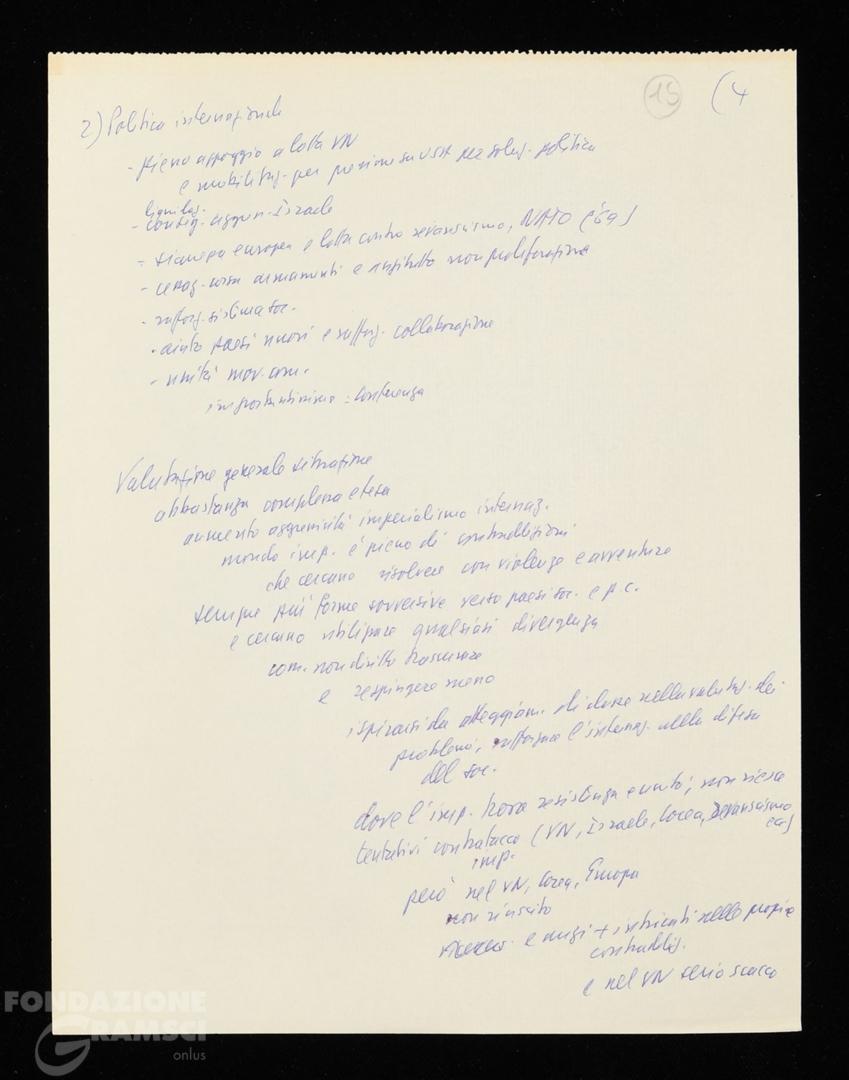 15 (4
2) Politica internazionale
- pieno appoggio a lotta VN
e mobilitaz. per pressione su USA per soluz. politica
liquidaz.
- conseg. aggres. Israele
- sicurezza europea e lotta contro revanscismo, NATO ('69)
- cessaz. corsa armamenti e trattato non proliferazione
- rafforz. sistema soc.
- aiuto paesi nuovi e rafforz. collaborazione
- unità mov. com.
importantissima: conferenza
Valutazione generale situazione
abbastanza complessa e tesa
aumento aggressività imperialismo internaz.
mondo imp. è pieno di contraddizioni
che cercano risolvere con violenze e avventure
sempre più forme sovversive verso paesi soc. e p.c.
e cercano utilizzare qualsiasi divergenza
com. non diritto trascurare
e respingere meno
ispirarsi da atteggiam. di classe nella valutaz. dei
problemi, rafforzare l'internaz. nella difesa
del soc.
dove l'imp. trova resistenza e unità, non riesce
tentativi contrattacco (VN, Israele, Corea, revanscismo
ecc)
imp.
però nel VN, Corea, Europa
non riuscito
e anzi + intricati nelle proprie
contraddiz.
e nel VN serio scacco
FONDAZIONE
GRAMSCI
onlus